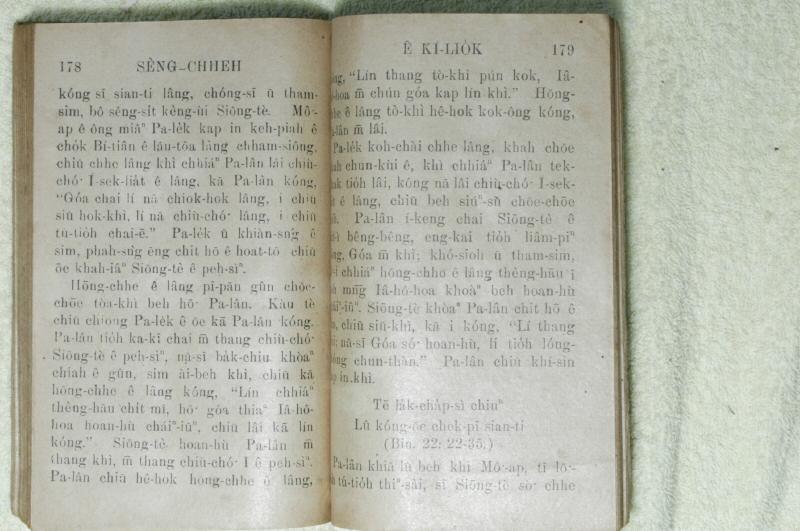 178 SÊNG-CHHEH
kóng sī sian-ti lâng, chóng-sī ū tham-
sim, bô sêng-si̍t kèng-ùi Siōng-tè. Mô͘-
ap ê ông miâⁿ Pa-le̍k kap in keh-piah ê
cho̍k Bí-tiân ê lāu-tōa lâng chham-siông,
chiū chhe lâng khì chhiáⁿ Pa-lân lâi chiù-
chó͘ Í-sek-lia̍t ê lâng, kā Pa-lân kóng,
“Góa chai lí nā chiok-hok lâng, i chiū
siū hok-khì, lí nā chiù-chó͘ lâng, i chiū
tú-tio̍h chai-ē.” Pa-le̍k ū khiàn-sńg ê
sim, phah-sǹg ēng chit hō ê hoat-tō chiū
ōe khah-iâⁿ Siōng-tè ê peh-sìⁿ.
Hōng-chhe ê lâng pī-pān gûn chōe-
chōe tòa-khì beh hō͘ Pa-lân. Kàu tè
chiū chiong Pa-le̍k ê ōe kā Pa-lân kóng.
Pa-lân tio̍h ka-kī chai m̄ thang chiù-chó͘
Siōng-tè ê peh-sìⁿ, nā-sī ba̍k-chiu khòaⁿ
chiah ê gûn, sim ài-beh khì, chiū kā
hōng-chhe ê lâng kóng, “Lín chhiáⁿ
thèng-hāu chi̍t mî, hō͘ góa thiaⁿ Iâ-hô-
hoa hoan-hù cháiⁿ-iūⁿ, chiū lâi kā lín
kóng.” Siōng-tè hoan-hù Pa-lân m̄
thang khì, m̄ thang chiù-chó͘ I ê peh-sìⁿ.
Pa-lân chiū hê-hok hōng-chhe ê lâng,
Ê KÍ-LIO̍K 179
“Lín thang tò-khì pún kok, Iâ-
m̄ chún góa kap lín khì.” Hōng-
ê lâng tò-khì hê-hok kok-ông kóng,
m̄ lâi.
Pa-le̍k koh-chài chhe lâng, khah chōe
chun-kùi ê, khì chhiáⁿ Pa-lân tek-
tio̍h lâi, kóng nā lâi chiù-chó͘ Í-sek-
ê lâng, chiū beh siúⁿ-sù chōe-chōe
Pa-lân í-keng chai Siōng-tè ê
bêng-bêng, eng-kai tio̍h liâm-piⁿ
Góa m̄ khì; khó-sioh ū tham-sim,
chhiáⁿ hōng-chhe ê lâng thèng-hāu i
mn̄g Iâ-hô-hoa khòaⁿ beh hoan-hù
Siōng-tè khòaⁿ Pa-lân chit hō ê
chiū siū-khì, kā i kóng, “Lí thang
nā-sī Góa só͘ hoan-hù, lí tio̍h lóng-
chun-thàn.” Pa-lân chiū khí-sin
in khì.
Tē la̍k-cha̍p-sì chiuⁿ
Lû kóng-ōe chek-pī sian-ti
(Bîn. 22: 22-35.)
Pa-lân khiâ lû beh khì Mô͘-ap, tī lō͘-
tú-tio̍h thiⁿ-sài, sī Siōng-tè só͘ chhe